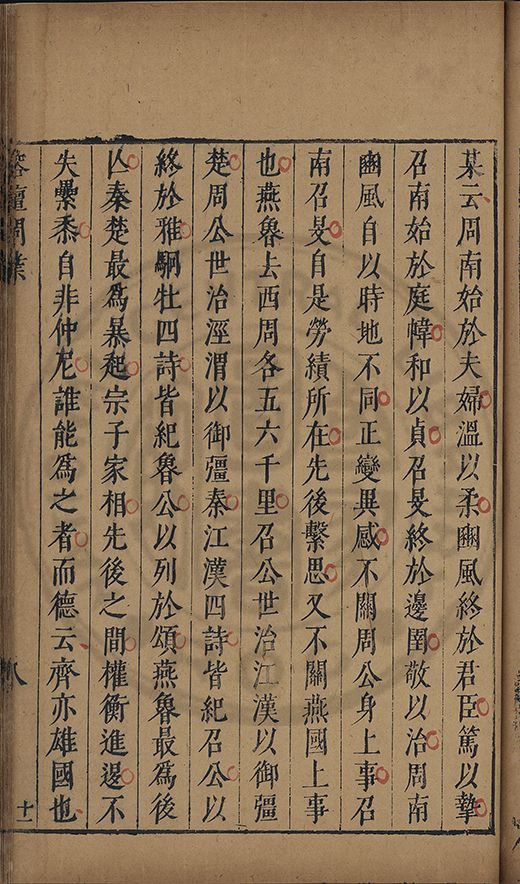 某云周南始於夫婦溫以柔豳風終於君臣篤以摯
召南始於庭幃和以貞召旻終於邊圉敬以治周南
豳風自以時地不同正變異感不關周公身上事召
南召旻自是勞績所在先後繫思又不關燕國上事
也燕魯去西周各五六千里召公世治江漢以御彊
楚周公世治涇渭以御彊秦江漢四詩皆紀召公以
終於雅駉牡四詩皆紀魯公以列於頌燕魯最為後
亾秦楚最為暴起宗子家相先後之間權衡進退不
失纍黍自非仲尼誰能為之者而德云齊亦雄國也
榕壇問業
八
十一